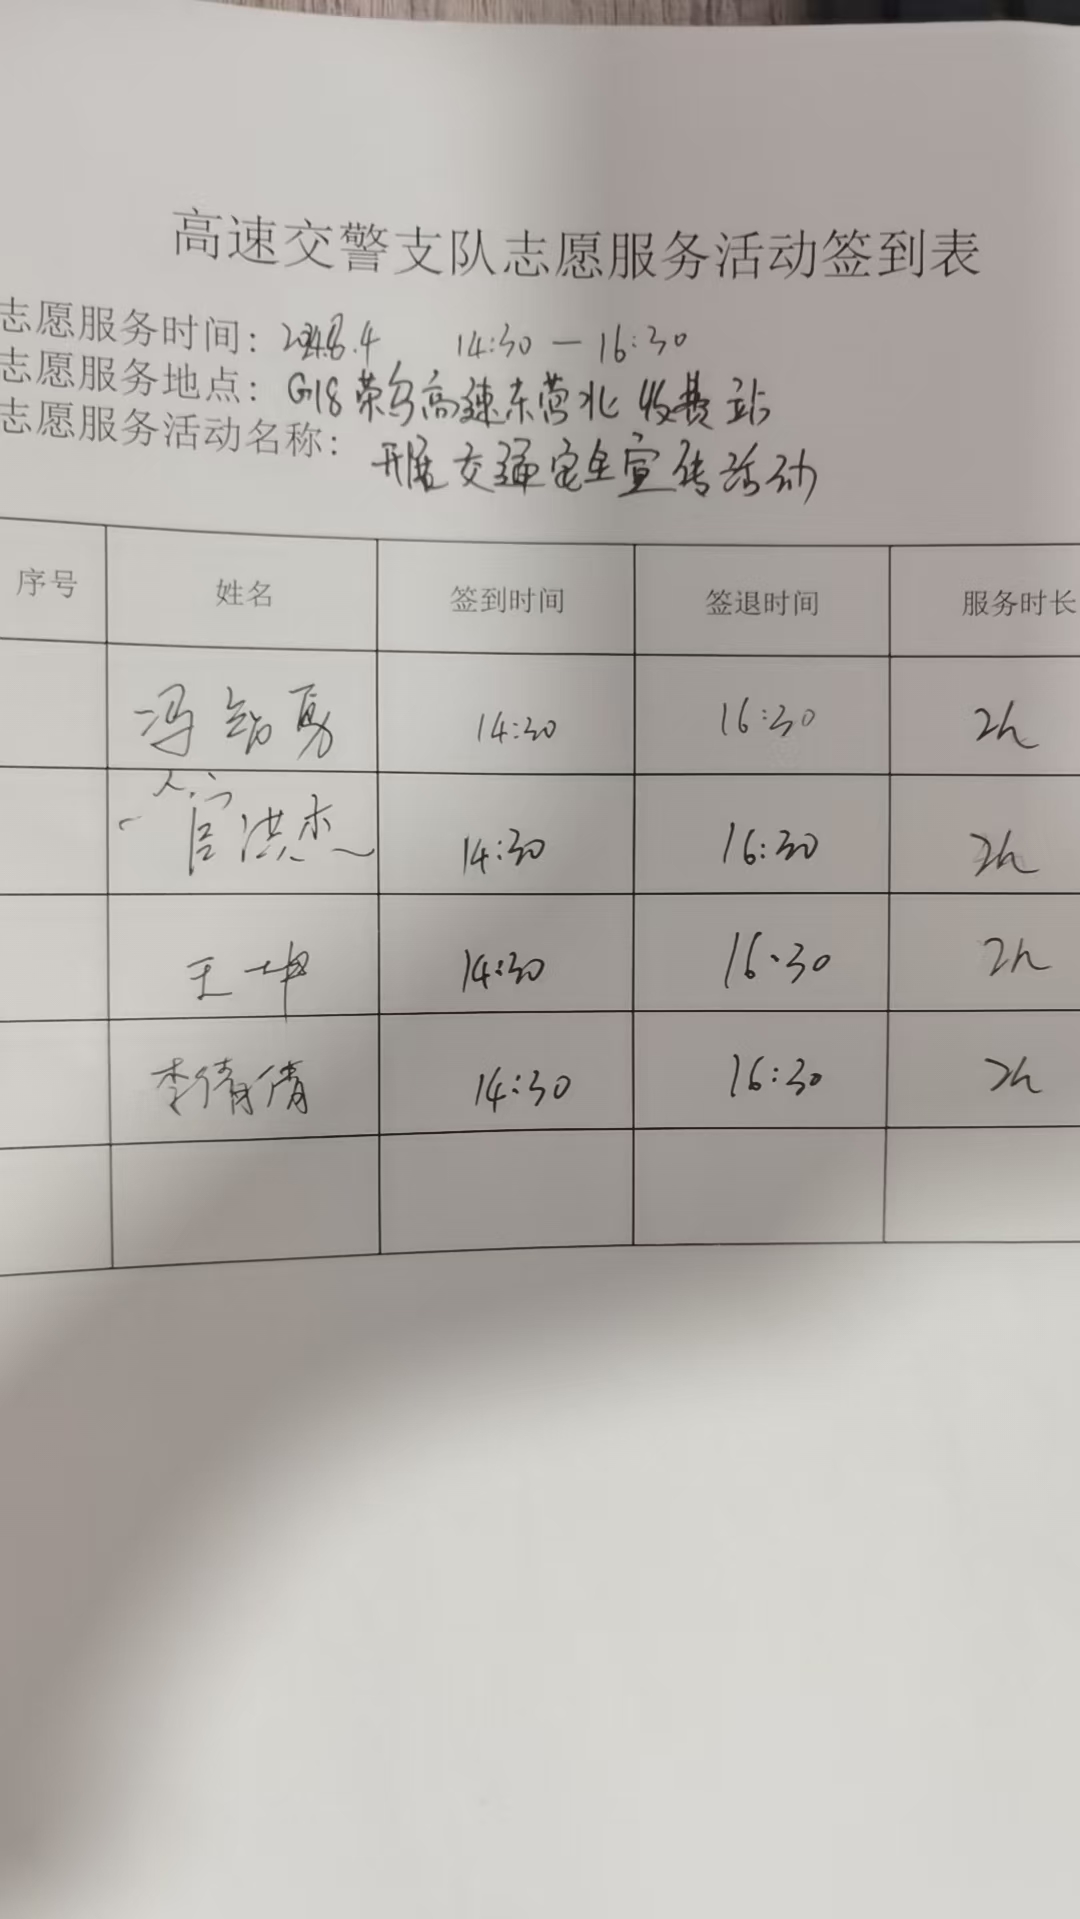 高速交警支队志愿服务活动签到表
志愿服务时间：2024.8.4 14:30－16:30
志愿服务地点：G18荣乌高速东营北收费站
志愿服务活动名称：开展交通安全宣传活动
序号 姓名 签到时间 签退时间 服务时长
冯韶勇 14:30 16:30 2h
官洪杰 14:30 16:30 2h
王坤 14:30 16:30 2h
李倩倩 14:30 16:30 2h